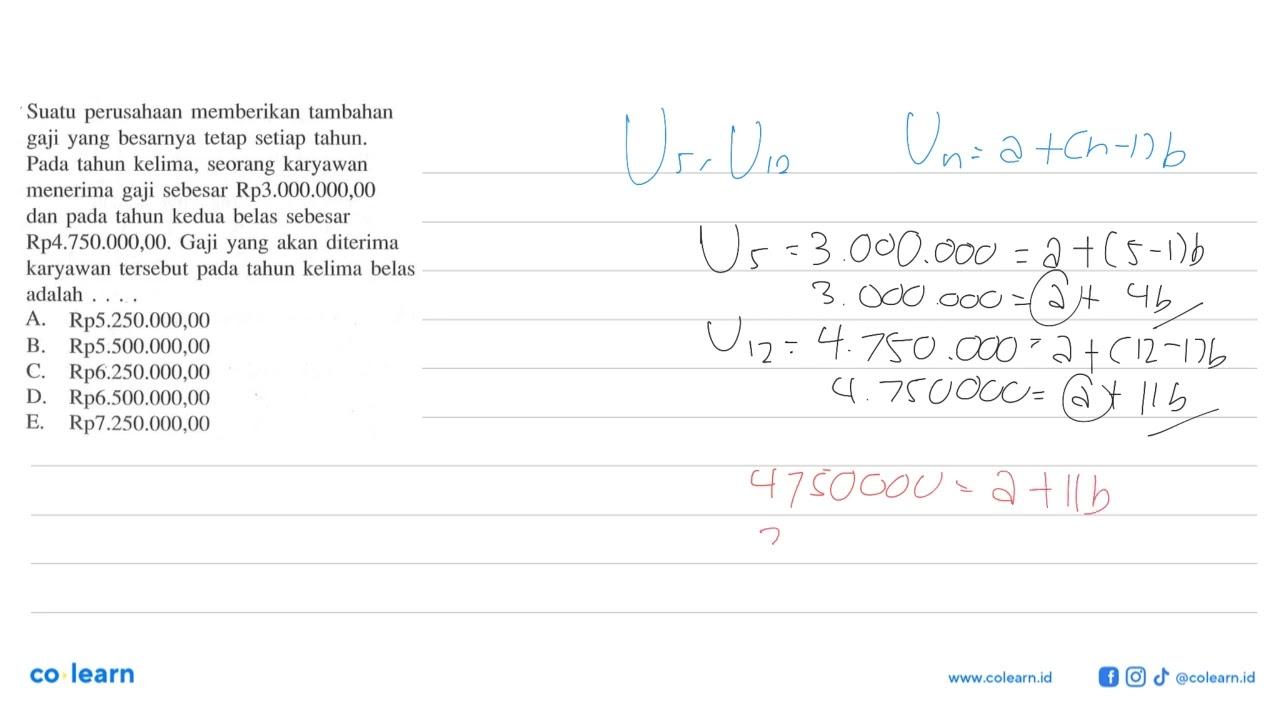 Suatu perusahaan memberikan tambahan
gaji yang besarnya tetap setiap tahun.
Pada tahun kelima, seorang karyawan
menerima gaji sebesar Rp3.000.000,00
dan pada tahun kedua belas sebesar
Rp4.750.000,00. Gaji yang akan diterima
karyawan tersebut pada tahun kelima belas
adalah . . . .
A. Rp5.250.000,00
B. Rp5.500.000,00
C. Rp6.250.000,00
D. Rp6.500.000,00
E. Rp7.250.000,00
U5, U12 Un = a + (n-1)b
U5 = 3.000.000 = a + (5-1)b
3.000.000 = a + 4b
U12 = 4.750.000 = a + (12-1)b
4.750000 = a + 11b
4750000 = a + 11b
co learn
www.colearn.id
@colearn.id